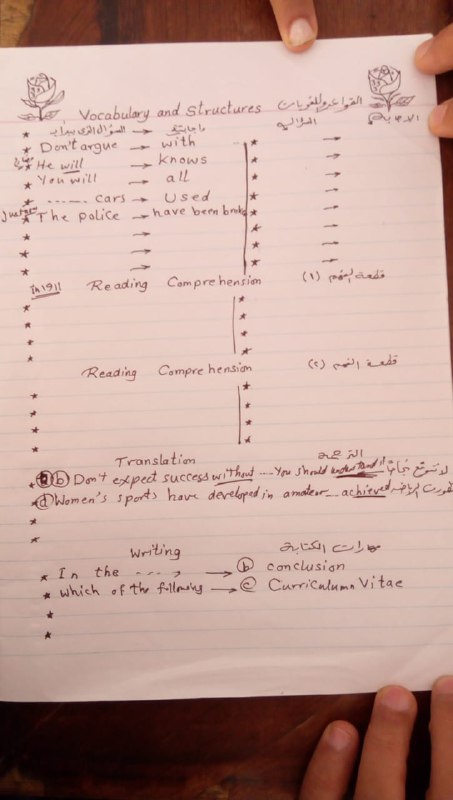 Vocabulary and Structures القواعد واللغويات
السؤال الذي يبدأ بـ → السؤال الاجابة
★ Don't argue → with ★ →
★ He will → knows ★ →
★ You will → all ★ →
★ ...... cars → Used ★ →
★ The police → have been broke ★ →
★ → ★ →
★ → ★ →
★ → ★ →
In 1911 Reading Comprehension قطعة الفهم (١)
Reading Comprehension قطعة الفهم (٢)
Translation الترجمة
ⓑ Don't expect success without .... You should understand لا تتوقع نجاحا
ⓓ Women's sports have developed in amateur ... achieved تطورت الرياضة
Writing مهارات الكتابة
★ In the ----> → ⓑ conclusion
★ which of the following → ⓒ Curriculumn Vitae